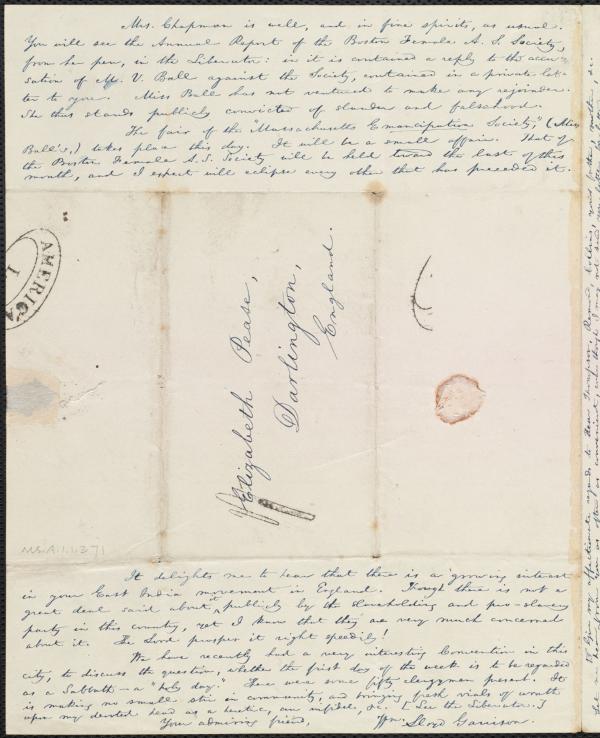 Mrs. Chapman is well, and in fine spirits, as usual.
You will see the Annual Report of the Boston Female A. S. Society,
from her pen, in the Liberator: in it is contained a reply to the accu-
sation of M. V. Ball against the Society, contained in a private let-
ter to you. Miss Ball has not ventured to make any rejoinder.
She thus stands publicly convicted of slander and falsehood.
The fair of the "Massachusetts Emancipation Society," (Miss
Ball's,) takes place this day. It will be a small affair. That of
the Boston Female A. S. Society will be held toward the last of this
month, and I expect will eclipse every other that has preceded it.
AMERICA
L
Elizabeth Pease,
Darlington,
England.
MS.A.1.1.3.71
It delights me to hear that there is a growing interest
in your East India movement in England. Though there is not a
great deal said about it publicly by the slaveholding and pro-slavery
party in this country, yet I know that they are very much concerned
about it. The Lord prosper it right speedily!
We have recently had a very interesting Convention in this
city, to discuss the question, whether the first day of the week is to be regarded
as a Sabbath—a "holy day." There were some fifty clergymen present. It
is making no small stir in community, and bringing fresh vials of wrath
upon my devoted head as a heretic, an infidel, &c. [See the Liberator.]
Your admiring friend, Wm. Lloyd Garrison.
affectionate regards to Geo. Thompson, Collins, your father & mother, &c.